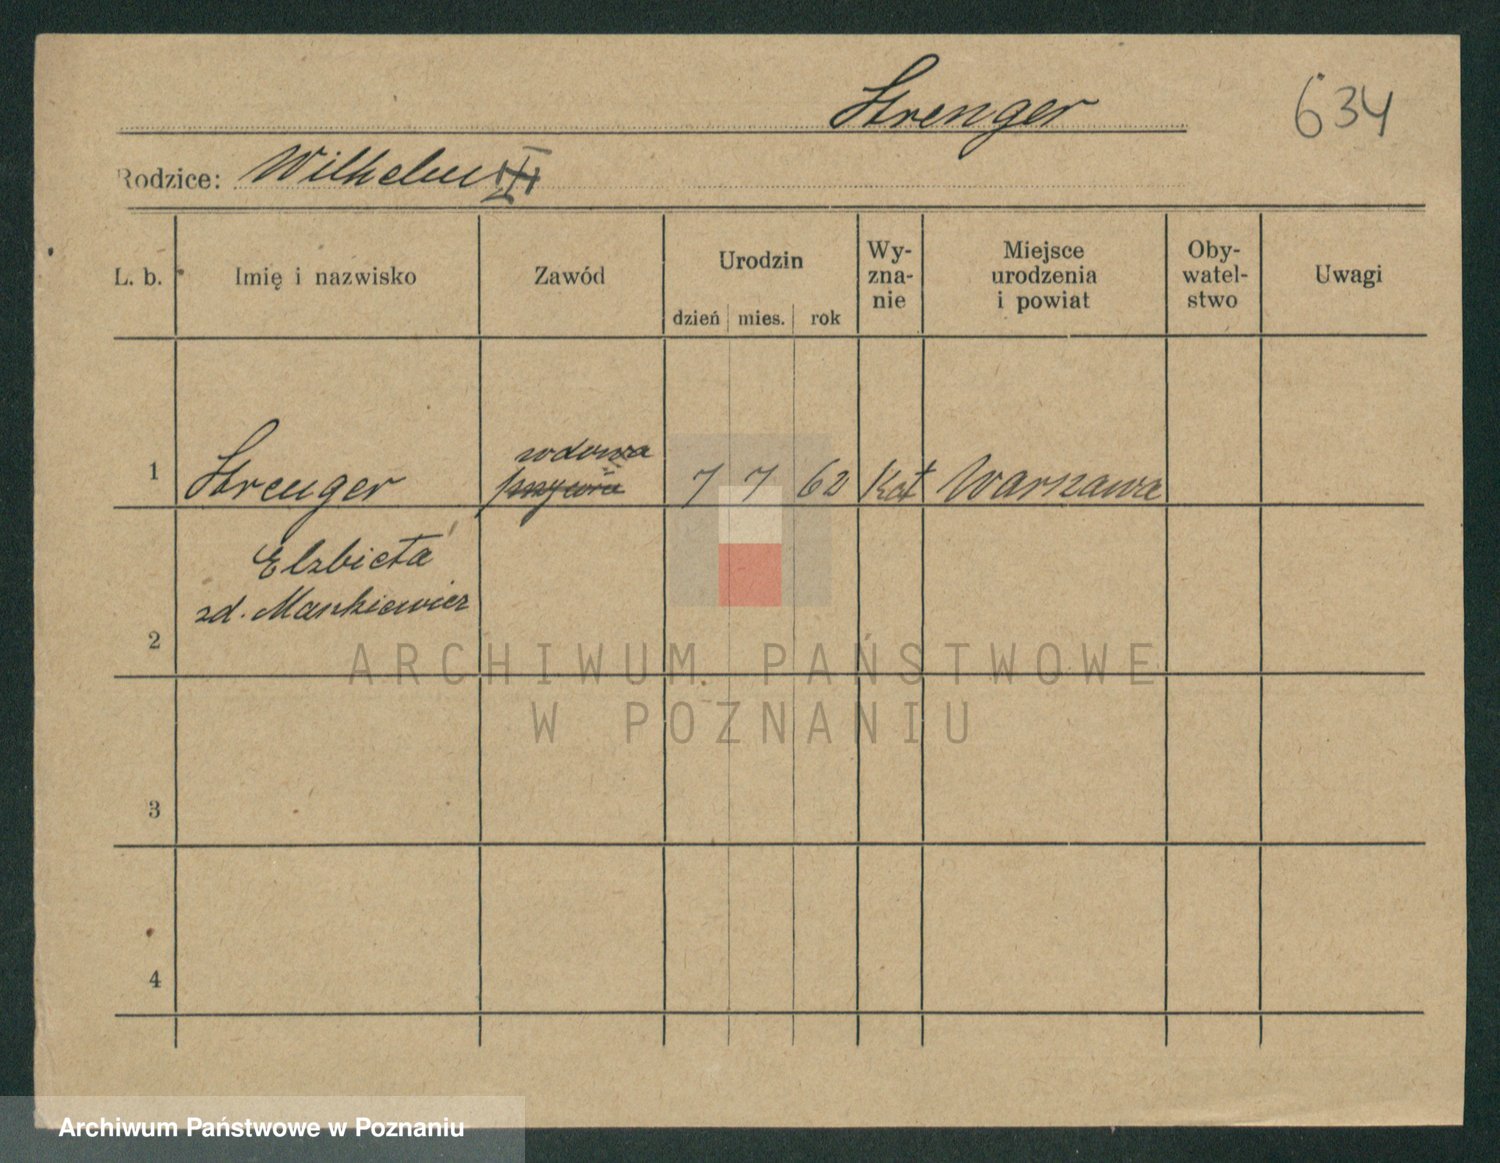 Strenger
634
Rodzice: Wilhelm
L. b. Imię i nazwisko Zawód Urodzin dzień mies. rok Wy-zna-nie Miejsce urodzenia i powiat Oby-watel-stwo Uwagi
wdowa
1 Strenger 7 7 62 Kat Warszawa
Elzbieta
zd. Mankiewicz
2
ARCHIWUM PAŃSTWOWE
W POZNANIU
3
4
Archiwum Państwowe w Poznaniu